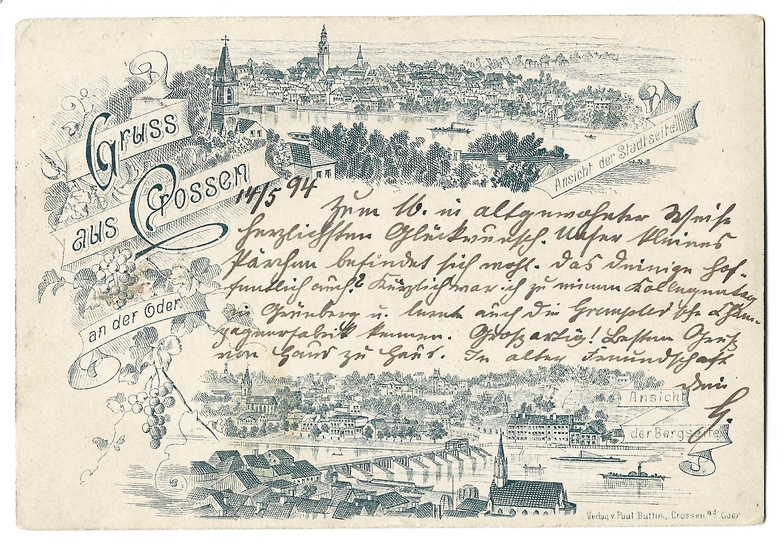 Gruss
aus Crossen
an der Oder
Ansicht der Stadtseite
14/5 94
Zum 16. in altgewohnter Weise
herzlichsten Glückwunsch. Unser kleines
Pärchen befindet sich wohl. Das deinige hof-
fentlich auch? Kürzlich war ich zu einem Kollegentag
in Grünberg u. lernte auch die Champ
pagnerfabrik kennen. Großartig! Besten Gruß
von Haus zu Haus. In alter Freundschaft
Dein
G.
Ansicht
der Bergseite
Verlag v. Paul Buttin, Crossen a.d. Oder